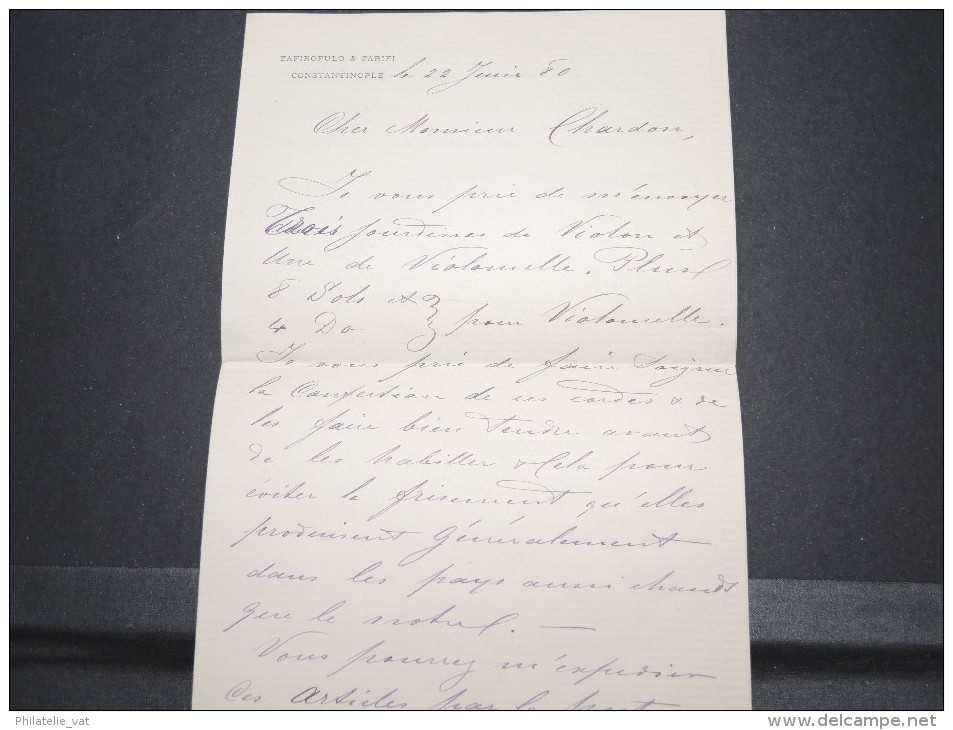 ZAFIROPULO & ZARIFI
CONSTANTINOPLE le 22 Juin 80
Cher Monsieur Chardon,
Je vous prie de m'envoyer
Trois sourdines de Violon et
Une de Violoncelle. Plus
8 Sols et
4 Do } pour Violoncelle.
Je vous prie de faire soigner
la Confection de ces cordes & de
les faire bien tendre avant
de les habiller & Cela pour
éviter le frisement qu'elles
produisent Généralement
dans les pays aussi chauds
que le notre. —
Vous pourrez m'expedier
Ces articles par la post
Philatelie_vat
delcampe.net